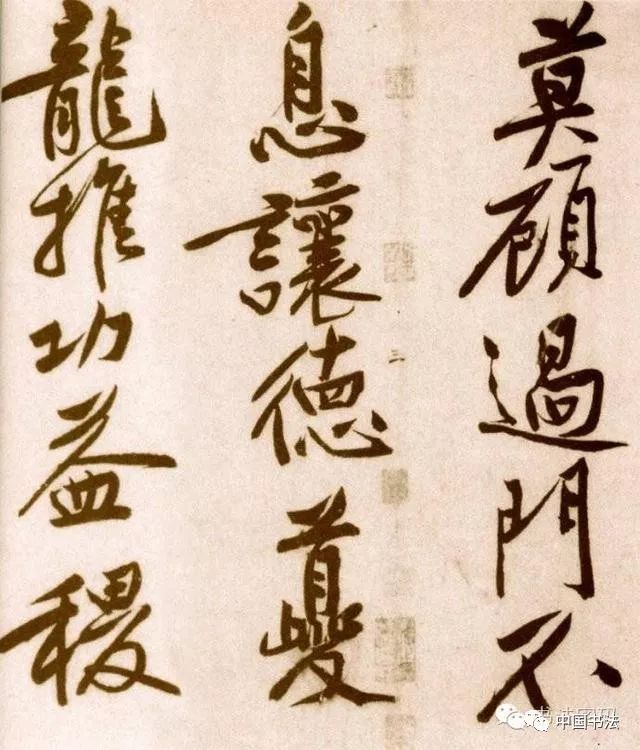 莫顧過門不
息讓德夔
龍推功益稷
三
中国书法